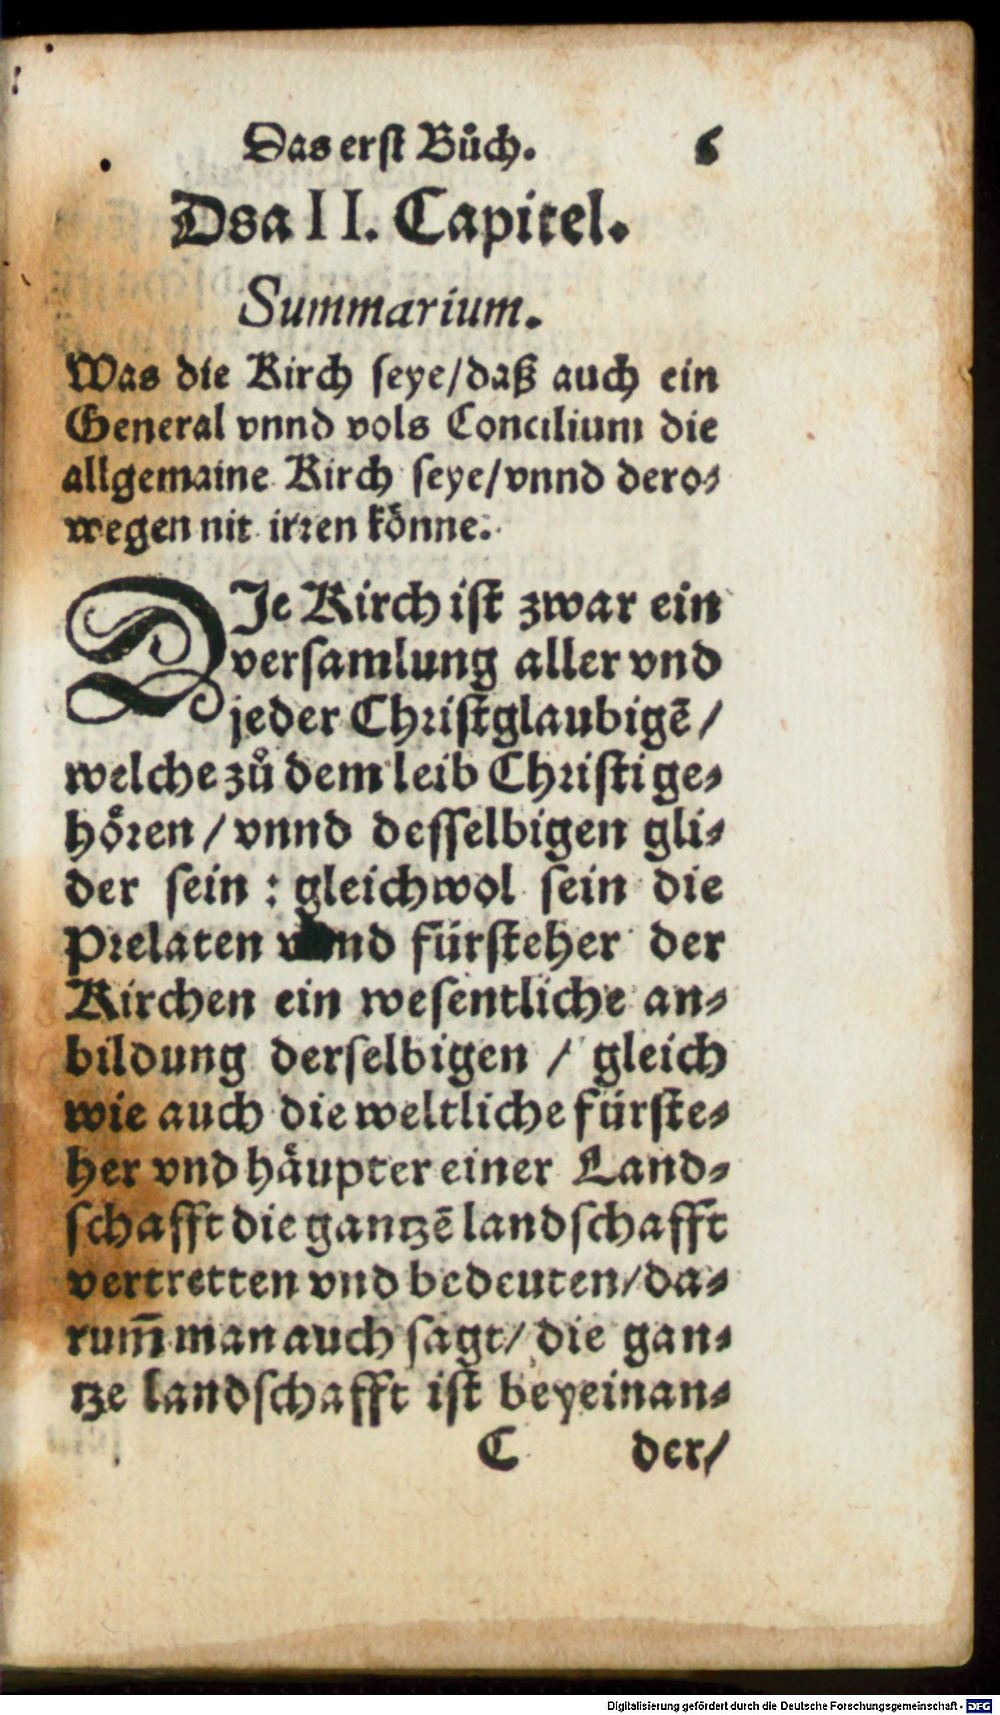 Das erst Bůch. 6
Dsa II. Capitel.
Summarium.
Was die Kirch seye/daß auch ein
General vnnd vols Concilium die
allgemaine Kirch seye/vnnd dero⸗
wegen nit irren könne.
DIe Kirch ist zwar ein
versamlung aller vnd
jeder Christglaubigē/
welche zů dem leib Christi ge⸗
hören/vnnd desselbigen gli⸗
der sein: gleichwol sein die
Prelaten vnnd fürsteher der
Kirchen ein wesentliche an⸗
bildung derselbigen / gleich
wie auch die weltliche fürste⸗
her vnd häupter einer Land⸗
schafft die gantzē landschafft
vertretten vnd bedeuten/da⸗
rum̄ man auch sagt/die gan⸗
tze landschafft ist beyeinan⸗
C der/
Digitalisierung gefördert durch die Deutsche Forschungsgemeinschaft - DFG